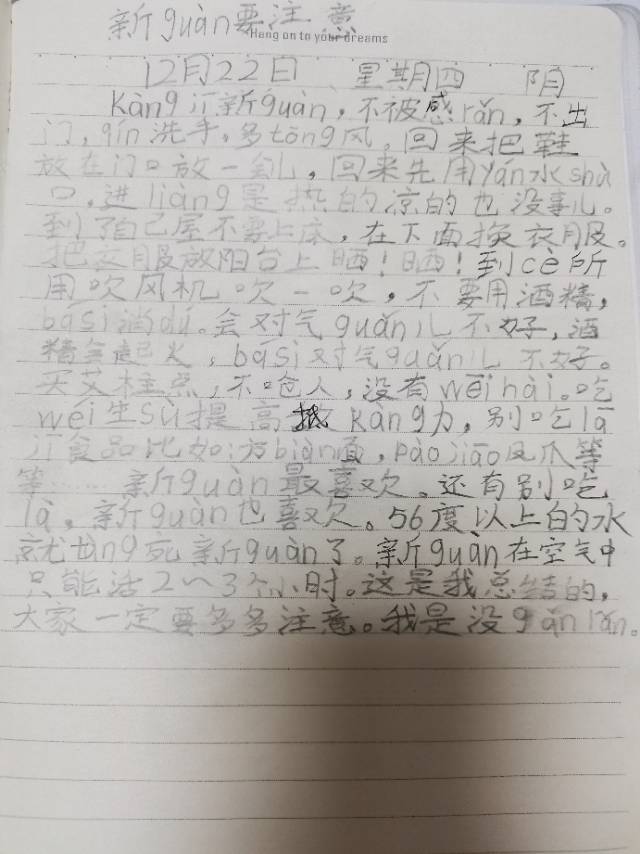 新guàn要注意
Hang on to your dreams
12月22日 星期四 阴
Kàng 新guàn，不被感rǎn，不出
门，qín洗手，多tōng风。回来把鞋
放在门口放一会儿，回来先用yán水shù
口，进liàng是热的凉的也没事儿。
到了自己屋不要上床，在下面换衣服。
把衣服放阳台上晒！晒！到cè所
用吹风机吹一吹，不要用酒精，
bāsì消dú。会对气guǎn儿不好，酒
精会起火，bāsì对气guǎn儿不好。
买艾柱点，不呛人，没有wēi hài。吃
wéi生sù提高 kàng力，别吃lā
圾食品比如：方biàn面，pào jiāo凤爪等
等……新guàn最喜欢。还有别吃
là，新guàn也喜欢。56度以上的水
就tàng死新guàn了。新guàn在空气中
只能活2~3个小时。这是我总结的，
大家一定要多多注意。我是没gǎn rǎn。